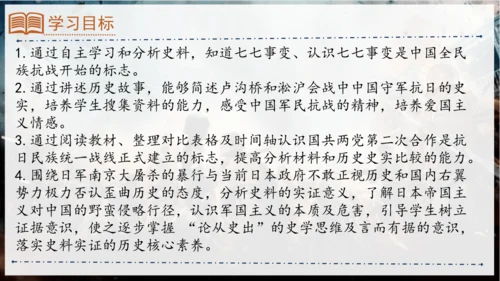 学习目标
1. 通过自主学习和分析史料，知道七七事变、认识七七事变是中国全民
族抗战开始的标志。
2. 通过讲述历史故事，能够简述卢沟桥和淞沪会战中中国守军抗日的史
实，培养学生搜集资料的能力，感受中国军民抗战的精神，培养爱国主
义情感。
3. 通过阅读教材、整理对比表格及时间轴认识国共两党第二次合作是抗
日民族统一战线正式建立的标志，提高分析材料和历史史实比较的能力。
4. 围绕日军南京大屠杀的暴行与当前日本政府不敢正视历史和国内右翼
势力极力否认歪曲历史的态度，分析史料的实证意义，了解日本帝国主
义对中国的野蛮侵略行径，认识军国主义的本质及危害，引导学生树立
证据意识，使之逐步掌握 “论从史出”的史学思维及言而有据的意识，
落实史料实证的历史核心素养。